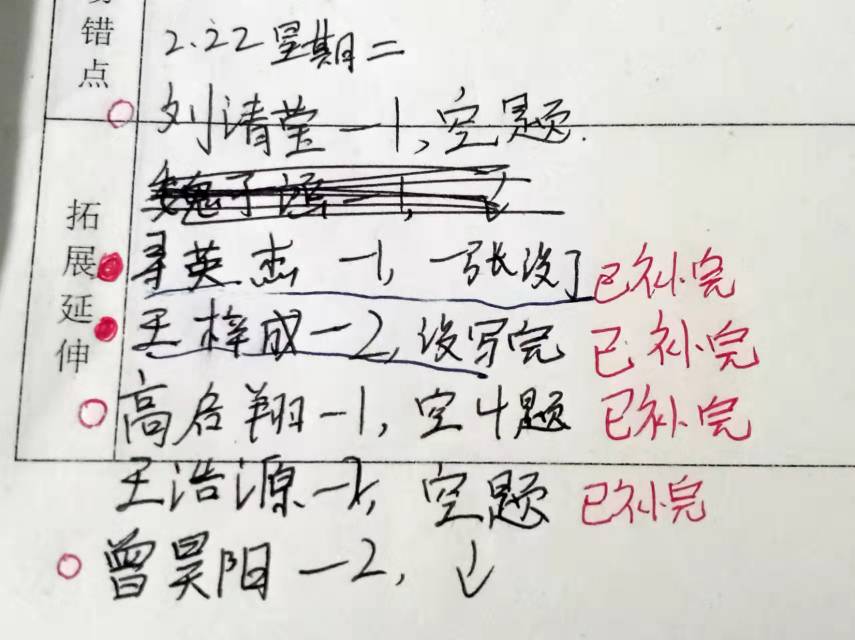 易错点
2.22 星期二
刘清莹 -1, 空题.
拓展延伸
寻英杰 -1, 一张没了 已补完
王梓成 -2, 没写完 已补完
高启翔 -1, 空4题 已补完
王浩源 -1, 空题 已补完
曾昊阳 -2, ↓